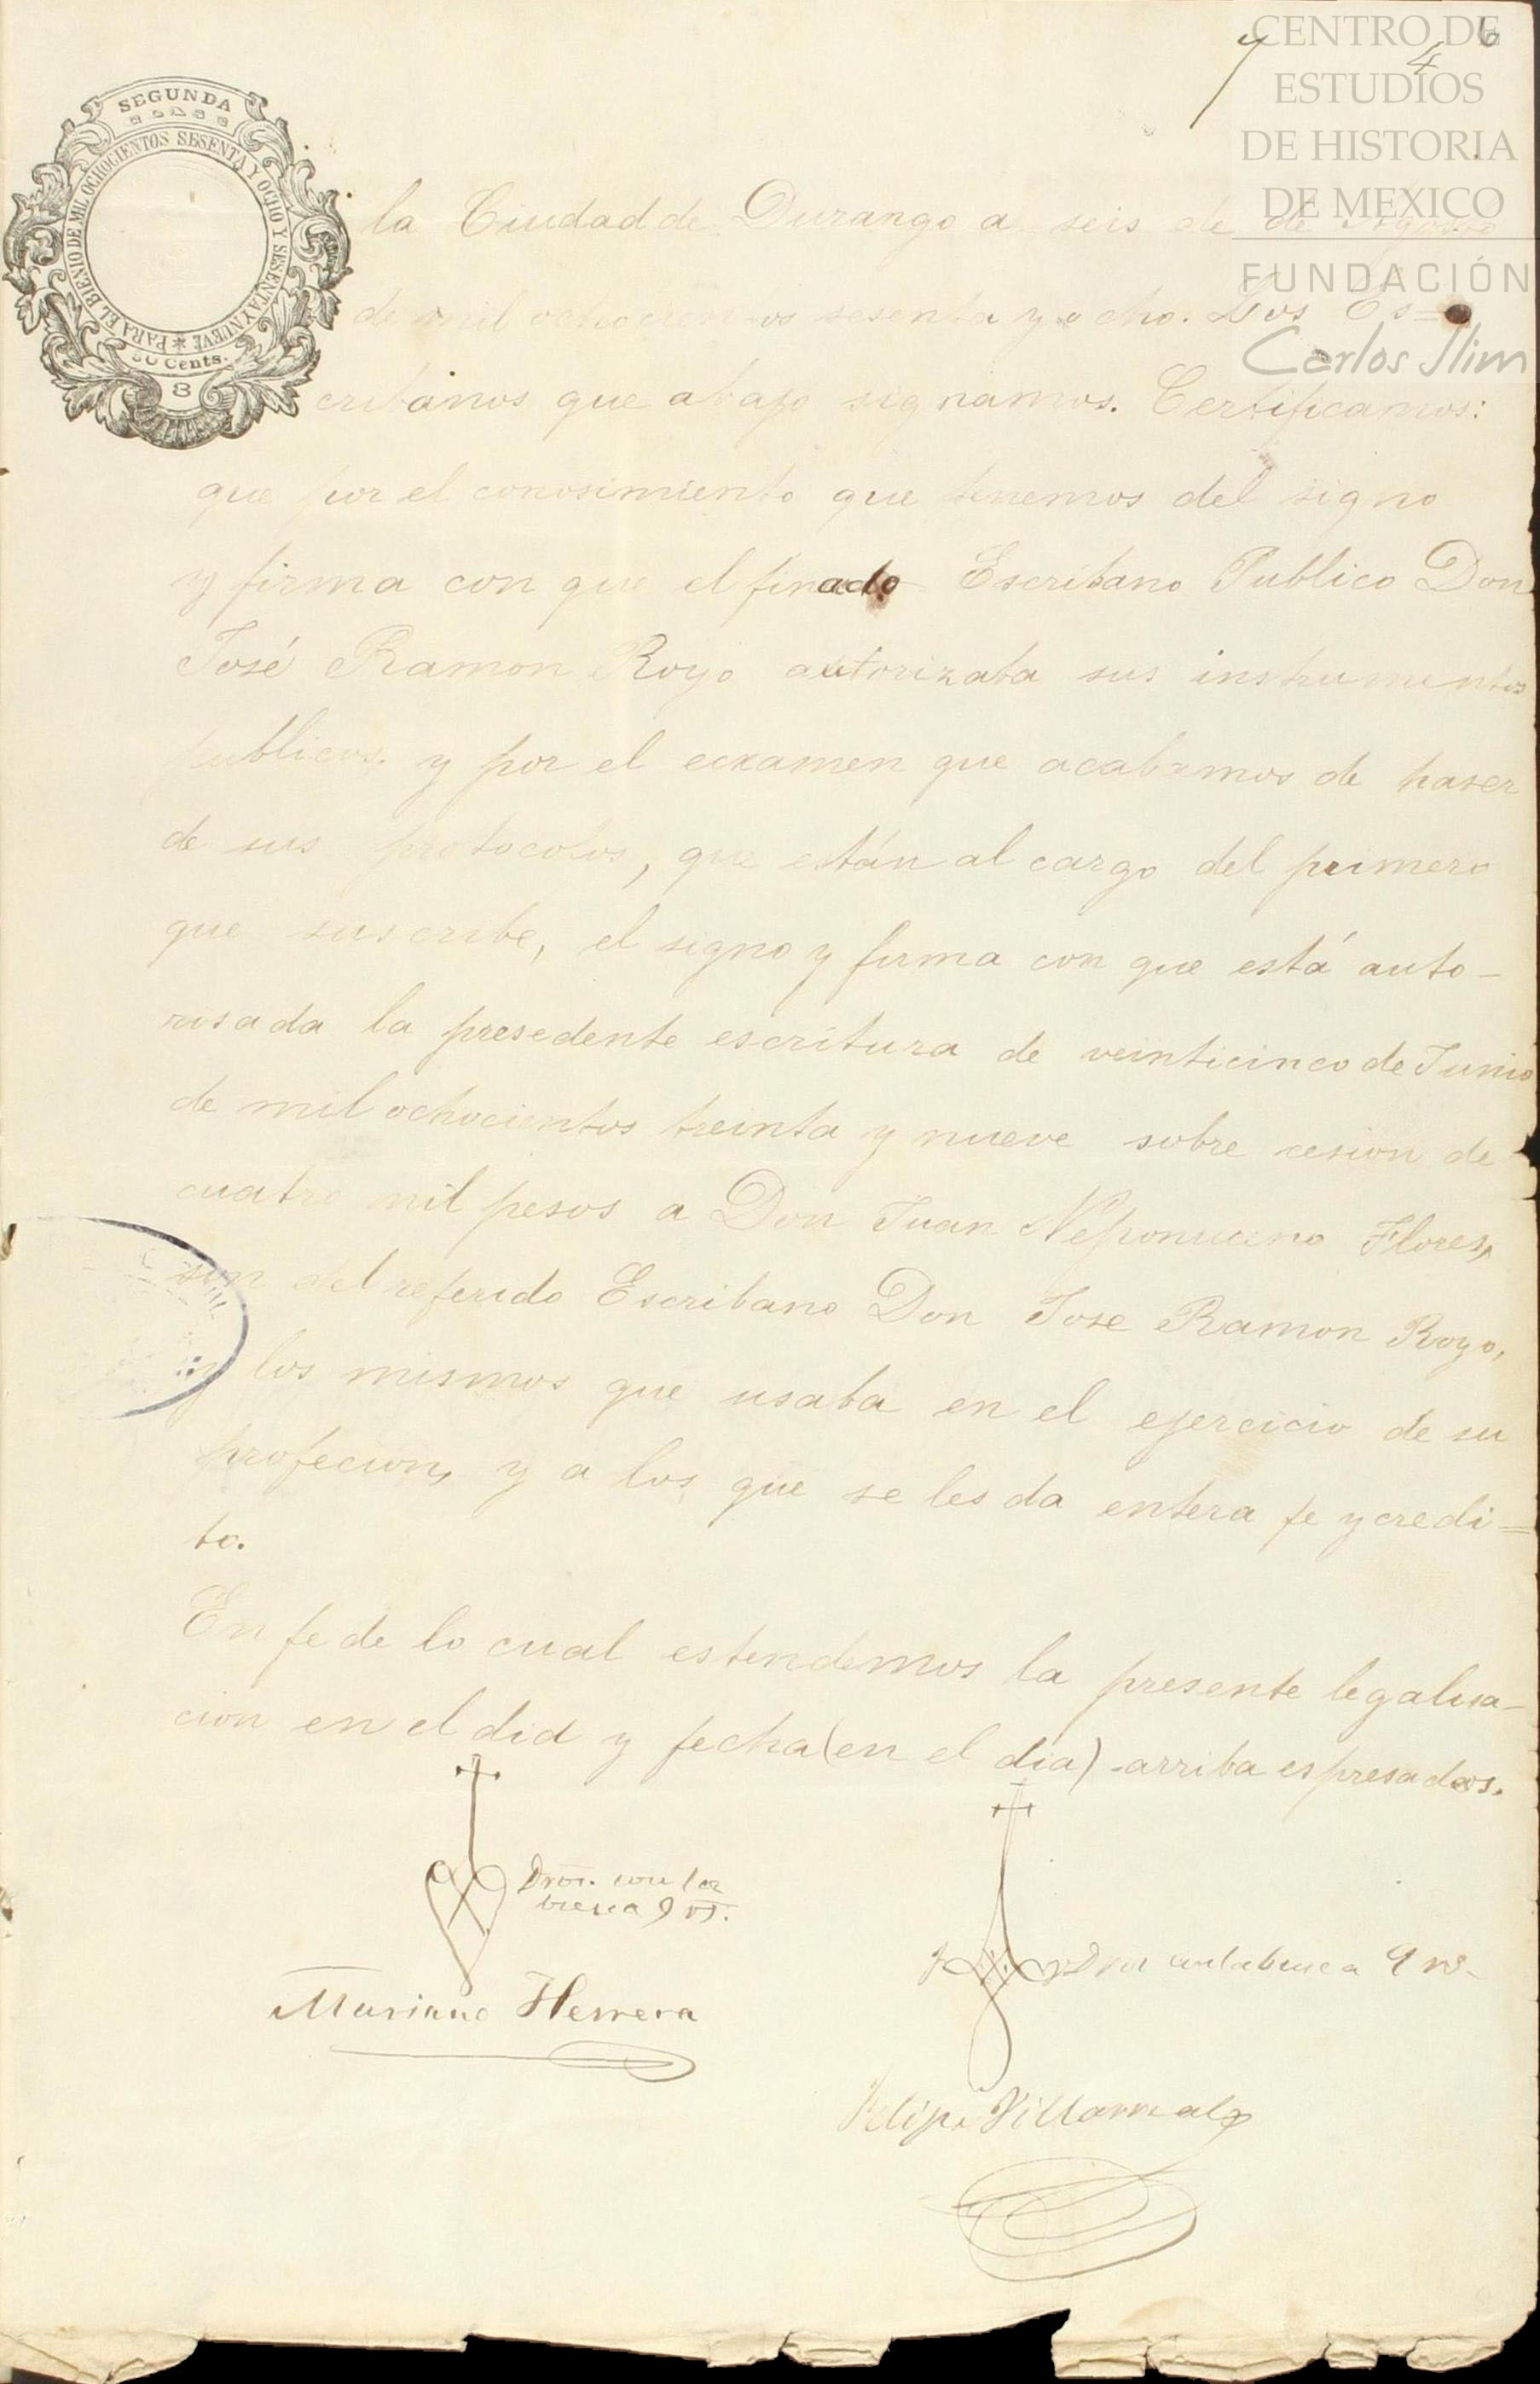 CENTRO DE
ESTUDIOS
DE HISTORIA
DE MEXICO
FUNDACIÓN
Carlos Slim
7 4 6
SEGUNDA
PARA EL BIENIO DE MIL OCHOCIENTOS SESENTA Y OCHO Y SESENTA Y NUEVE
50 Cents.
8
la Ciudad de Durango a seis de de Agosto
de mil ochocientos sesenta y ocho. Los Es=
cribanos que abajo signamos. Certificamos:
que por el conosimiento que tenemos del signo
y firma con que el finado Escribano Publico Don
José Ramon Royo autorizaba sus instrumentos
publicos, y por el ecxamen que acabamos de haser
de sus protocolos, que están al cargo del primero
que suscribe, el signo y firma con que está auto-
risada la presedente escritura de veinticinco de Junio
de mil ochocientos treinta y nueve sobre cesion de
cuatro mil pesos a Don Juan Neponuceno Flores,
son del referido Escribano Don Jose Ramon Royo,
y los mismos que usaba en el ejercicio de su
profecion, y a los que se les da entera fe y credi=
to.
En fe de lo cual estendemos la presente legalisa-
cion en el did y fecha (en el dia) arriba espresados.
Dros. con la
busca 9 rs.
Mariano Herrera
Dros con la busca 9 rs.
Felipe Villarreal